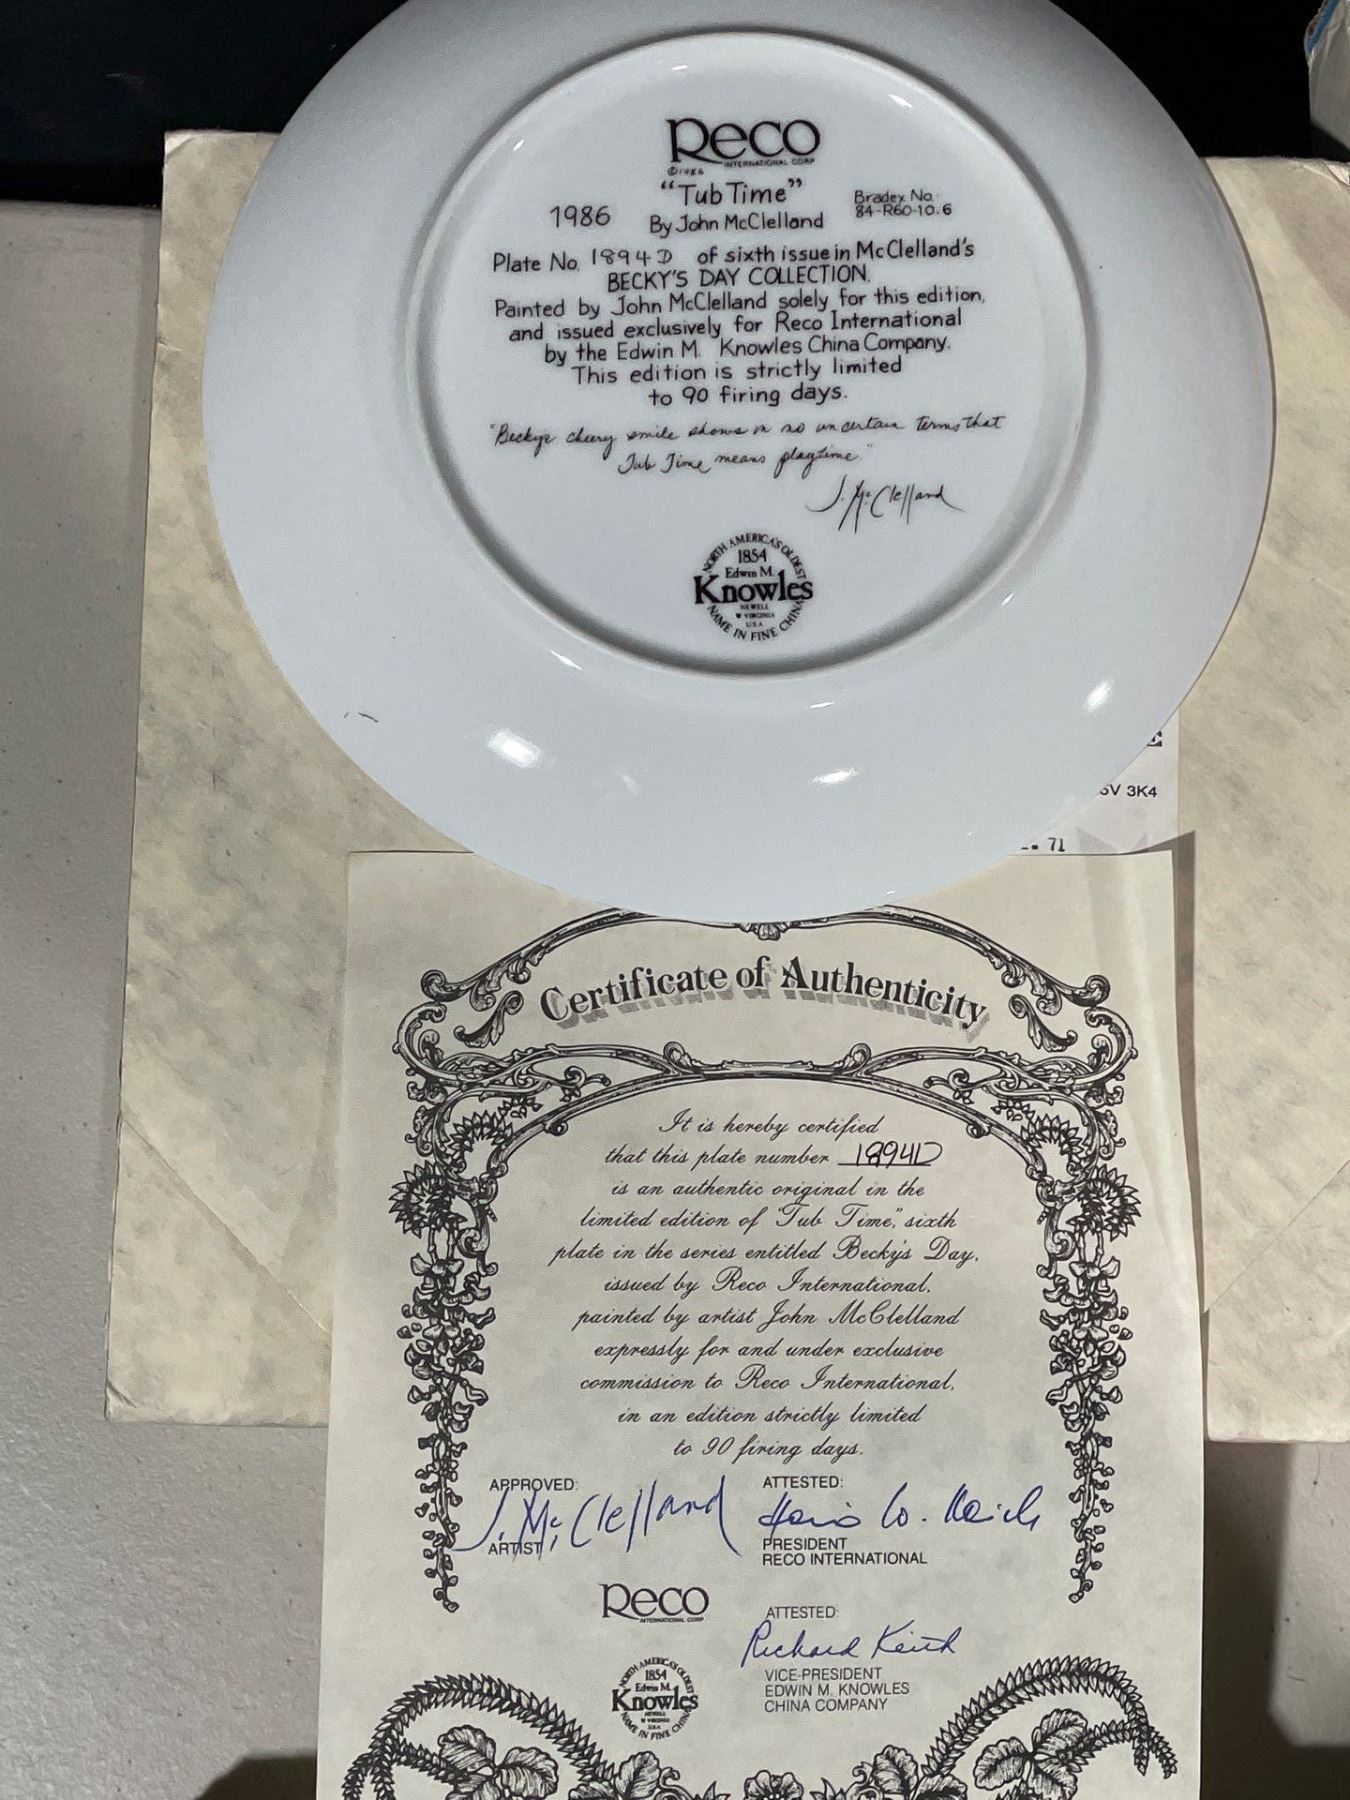 Reco
INTERNATIONAL CORP
©1986
"Tub Time"
1986
By John McClelland
Bradex No.
84-R60-10.6
Plate No. 1894D of sixth issue in McClelland's
BECKY'S DAY COLLECTION.
Painted by John McClelland solely for this edition,
and issued exclusively for Reco International
by the Edwin M. Knowles China Company.
This edition is strictly limited
to 90 firing days.
"Becky's cheery smile shows in no uncertain terms that
Tub Time means playtime."
J. McClelland
NORTH AMERICA'S OLDEST
1854
Edwin M.
Knowles
NEWELL
W VIRGINIA
U.S.A
NAME IN FINE CHINA
3K4
71
Certificate of Authenticity
It is hereby certified
that this plate number 1894D
is an authentic original in the
limited edition of "Tub Time", sixth
plate in the series entitled Becky's Day,
issued by Reco International,
painted by artist John McClelland
expressly for and under exclusive
commission to Reco International,
in an edition strictly limited
to 90 firing days.
APPROVED:
J. McClelland
ARTIST
ATTESTED:
PRESIDENT
RECO INTERNATIONAL
Reco
INTERNATIONAL CORP
ATTESTED:
Richard Keith
VICE-PRESIDENT
EDWIN M. KNOWLES
CHINA COMPANY
NORTH AMERICA'S OLDEST
1854
Edwin M.
Knowles
NEWELL
W VIRGINIA
U.S.A
NAME IN FINE CHINA